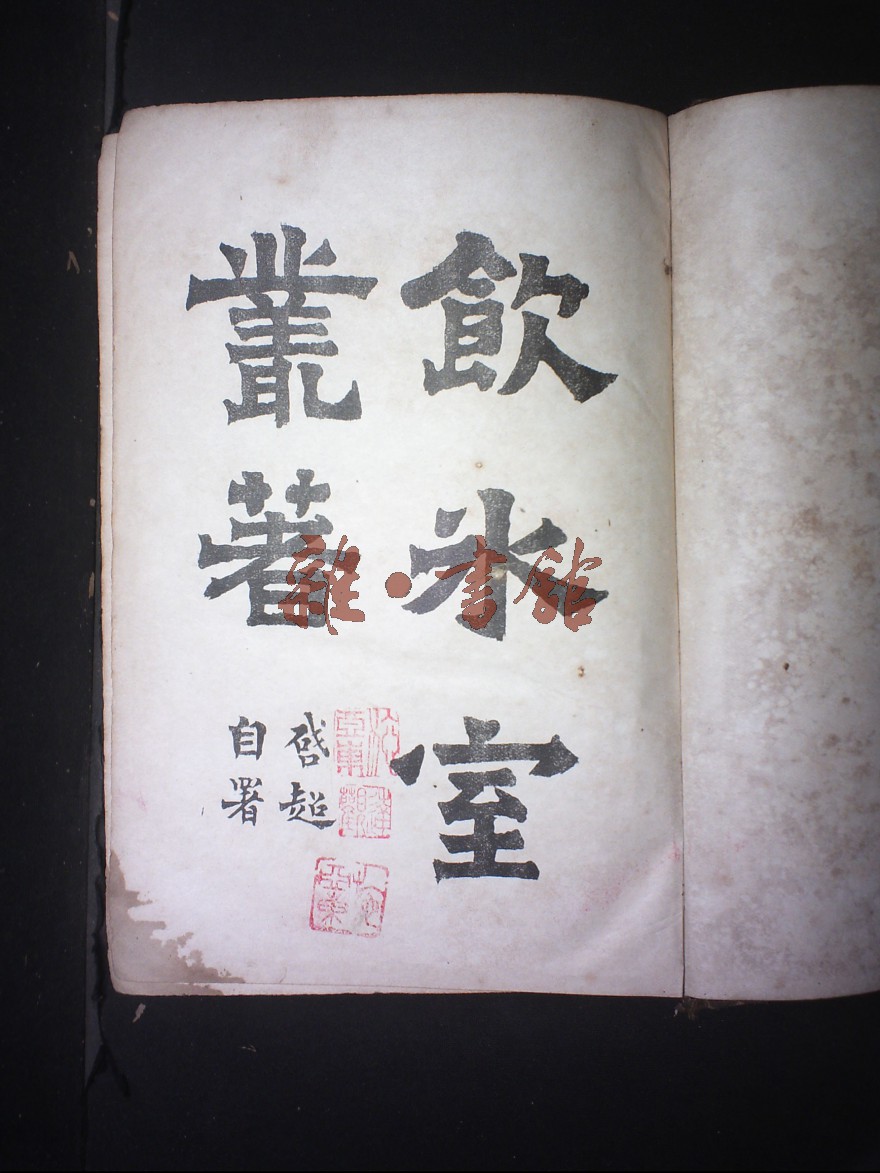 飲冰室
叢著
啓超
自署
雜·書館